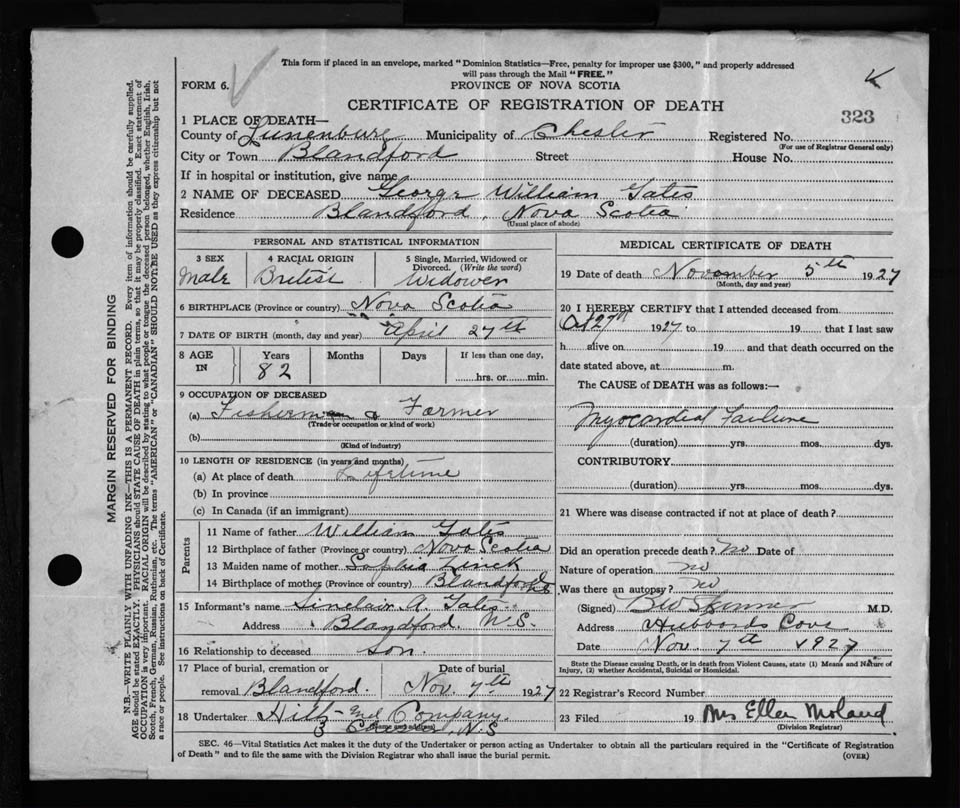 This form if placed in an envelope, marked "Dominion Statistics—Free, penalty for improper use $300," and properly addressed
will pass through the Mail "FREE."
FORM 6.
PROVINCE OF NOVA SCOTIA
CERTIFICATE OF REGISTRATION OF DEATH
323
1 PLACE OF DEATH—
County of Lunenburg Municipality of Chester Registered No.
(For use of Registrar General only)
City or Town Blandford Street House No.
If in hospital or institution, give name
2 NAME OF DECEASED George William Gates
Residence Blandford, Nova Scotia
(Usual place of abode)
PERSONAL AND STATISTICAL INFORMATION
3 SEX 4 RACIAL ORIGIN 5 Single, Married, Widowed or
Divorced. (Write the word)
Male British Widower
6 BIRTHPLACE (Province or country) Nova Scotia
7 DATE OF BIRTH (month, day and year) April 27th
8 AGE IN Years Months Days If less than one day,
82 hrs. or min.
9 OCCUPATION OF DECEASED
(a) Fisherman & Farmer
(Trade or occupation or kind of work)
(b)
(Kind of industry)
10 LENGTH OF RESIDENCE (in years and months)
(a) At place of death Lifetime
(b) In province
(c) In Canada (if an immigrant)
Parents
11 Name of father William Gates
12 Birthplace of father (Province or country) Nova Scotia
13 Maiden name of mother Sophia Zinck
14 Birthplace of mother (Province or country) Blandford N.S.
15 Informant's name Sinclair A. Gates
Address Blandford. N.S.
16 Relationship to deceased son.
17 Place of burial, cremation or Date of burial
removal Blandford. Nov. 7th 1927
18 Undertaker Hill and Company
N.S
MEDICAL CERTIFICATE OF DEATH
19 Date of death November 5th 1927
(Month, day and year)
20 I HEREBY CERTIFY that I attended deceased from
Oct 27th 1927 to 19 that I last saw
h alive on 19 and that death occurred on the
date stated above, at m.
The CAUSE of DEATH was as follows:—
Myocardial Failure
(duration) yrs. mos. dys.
CONTRIBUTORY.
(duration) yrs. mos. dys.
21 Where was disease contracted if not at place of death?
Did an operation precede death? no Date of
Nature of operation no
Was there an autopsy? no
(Signed) BW Skinner M.D.
Address Hubbards Cove
Date Nov. 7th 1927
State the Disease causing Death, or in death from Violent Causes, state (1) Means and Nature of
Injury, (2) whether Accidental, Suicidal or Homicidal.
22 Registrar's Record Number
23 Filed 19 Mrs Ellen Moland
(Division Registrar)
SEC. 46—Vital Statistics Act makes it the duty of the Undertaker or person acting as Undertaker to obtain all the particulars required in the "Certificate of Registration
of Death" and to file the same with the Division Registrar who shall issue the burial permit.
(OVER)
MARGIN RESERVED FOR BINDING
N.B.—WRITE PLAINLY WITH UNFADING INK—THIS IS A PERMANENT RECORD. Every item of information should be carefully supplied.
AGE should be stated EXACTLY. PHYSICIANS should STATE CAUSE OF DEATH in plain terms, so that it may be properly classified. Exact statement of
OCCUPATION is very important. RACIAL ORIGIN will be described by stating to what people or tongue the deceased person belonged, whether English, Irish,
Scotch, French, German, Russian, Ruthenian, etc. The terms "AMERICAN" or "CANADIAN" SHOULD NOT BE USED as they express citizenship but not
a race or people. See instructions on back of Certificate.